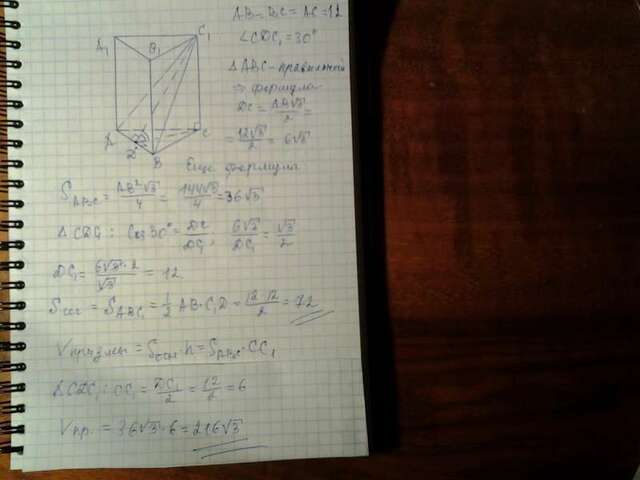 AB = BC = AC = 12
∠CDC₁ = 30°
△ABC - правильный
⇒ формула
DC = AB√3/2 =
= 12√3/2 = 6√3
Еще формула
A₁
B₁
C₁
A
D
B
C
S_ABC = AB²√3/4 = 144√3/4 = 36√3
cos 30° = DC/DC₁; 6√3/DC₁ = √3/2
DC₁ = 6√3·2/√3 = 12
S_сеч = S_ABC₁ = 1/2 AB·C₁D = 12·12/2 = 72
V призмы = S_осн·h = S_ABC·CC₁
△CDC₁: CC₁ = DC₁/2 = 12/2 = 6
V пр. = 36√3·6 = 216√3